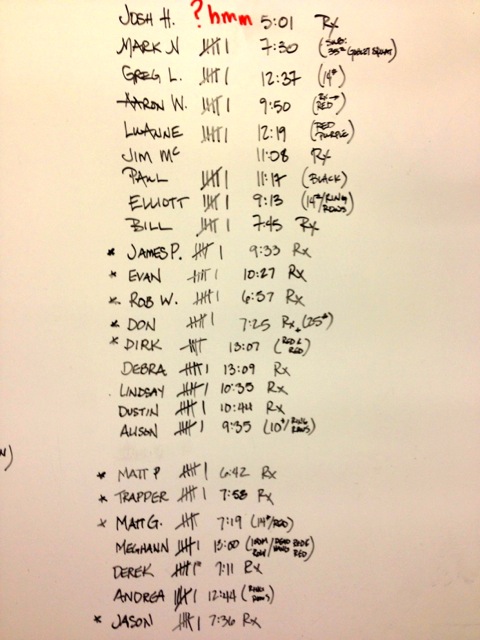 JOSH H. ? hmm 5:01 Rx
MARK N 𝍸 I 7:30 (SUB: 35# GOBLET SQUAT)
GREG L. 𝍸 I 12:37 (14#)
AARON W. 𝍸 I 9:50 (RX → RED)
LUANNE 𝍸 I 12:19 (RED PURPLE)
JIM Mc 11:08 Rx
PAUL 𝍸 I 11:17 (BLACK)
ELLIOTT 𝍸 I 9:13 (14#/RING ROWS)
BILL 𝍸 I 7:45 Rx
* JAMES P. 𝍸 I 9:33 Rx
* EVAN 𝍸 I 10:27 Rx
* ROB W. 𝍸 I 6:37 Rx
* DON 𝍸 I 7:25 Rx + (25#)
* DIRK 𝍸 13:07 (RED & RED)
DEBRA 𝍸 I 13:09 Rx
LINDSAY 𝍸 I 10:35 Rx
DUSTIN 𝍸 I 10:44 Rx
ALISON 𝍸 I 9:35 (10#/RING ROWS)
)
* MATT P 𝍸 I 6:42 Rx
* TRAPPER 𝍸 I 7:58 Rx
* MATT G. 𝍸 7:19 (14#/RED)
MEGHANN 𝍸 I 13:00
DEREK 𝍸 I 7:11 Rx
ANDREA 𝍸 I 12:44 (RING ROWS)
* JASON 𝍸 I 7:36 Rx